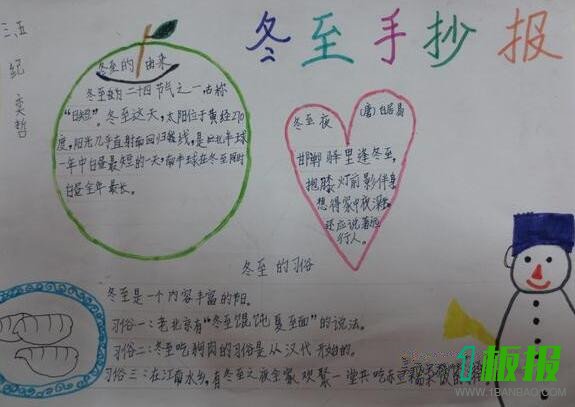 冬至手抄报
三五
纪奕哲
冬至的由来
冬至的二十四节气之一,古称
"日短"冬至这天,太阳位于黄经270
度,阳光几乎直射南回归线,是北半球
一年中白昼最短的一天,南半球在冬至同时
白昼全年最长。
冬至夜
(唐)白居易
邯郸驿里逢冬至,
抱膝灯前影伴身
想得家中夜深坐
还应说着远
行人。
冬至的习俗
冬至是一个内容丰富的节。
习俗一:老北京有"冬至馄饨夏至面"的说法。
习俗二:冬至吃狗肉的习俗是从汉代开始的。
习俗三:在江南水乡,有冬至之夜全家欢聚一堂共吃赤豆糯米饭
1板报
WWW.1BANBAO.COM